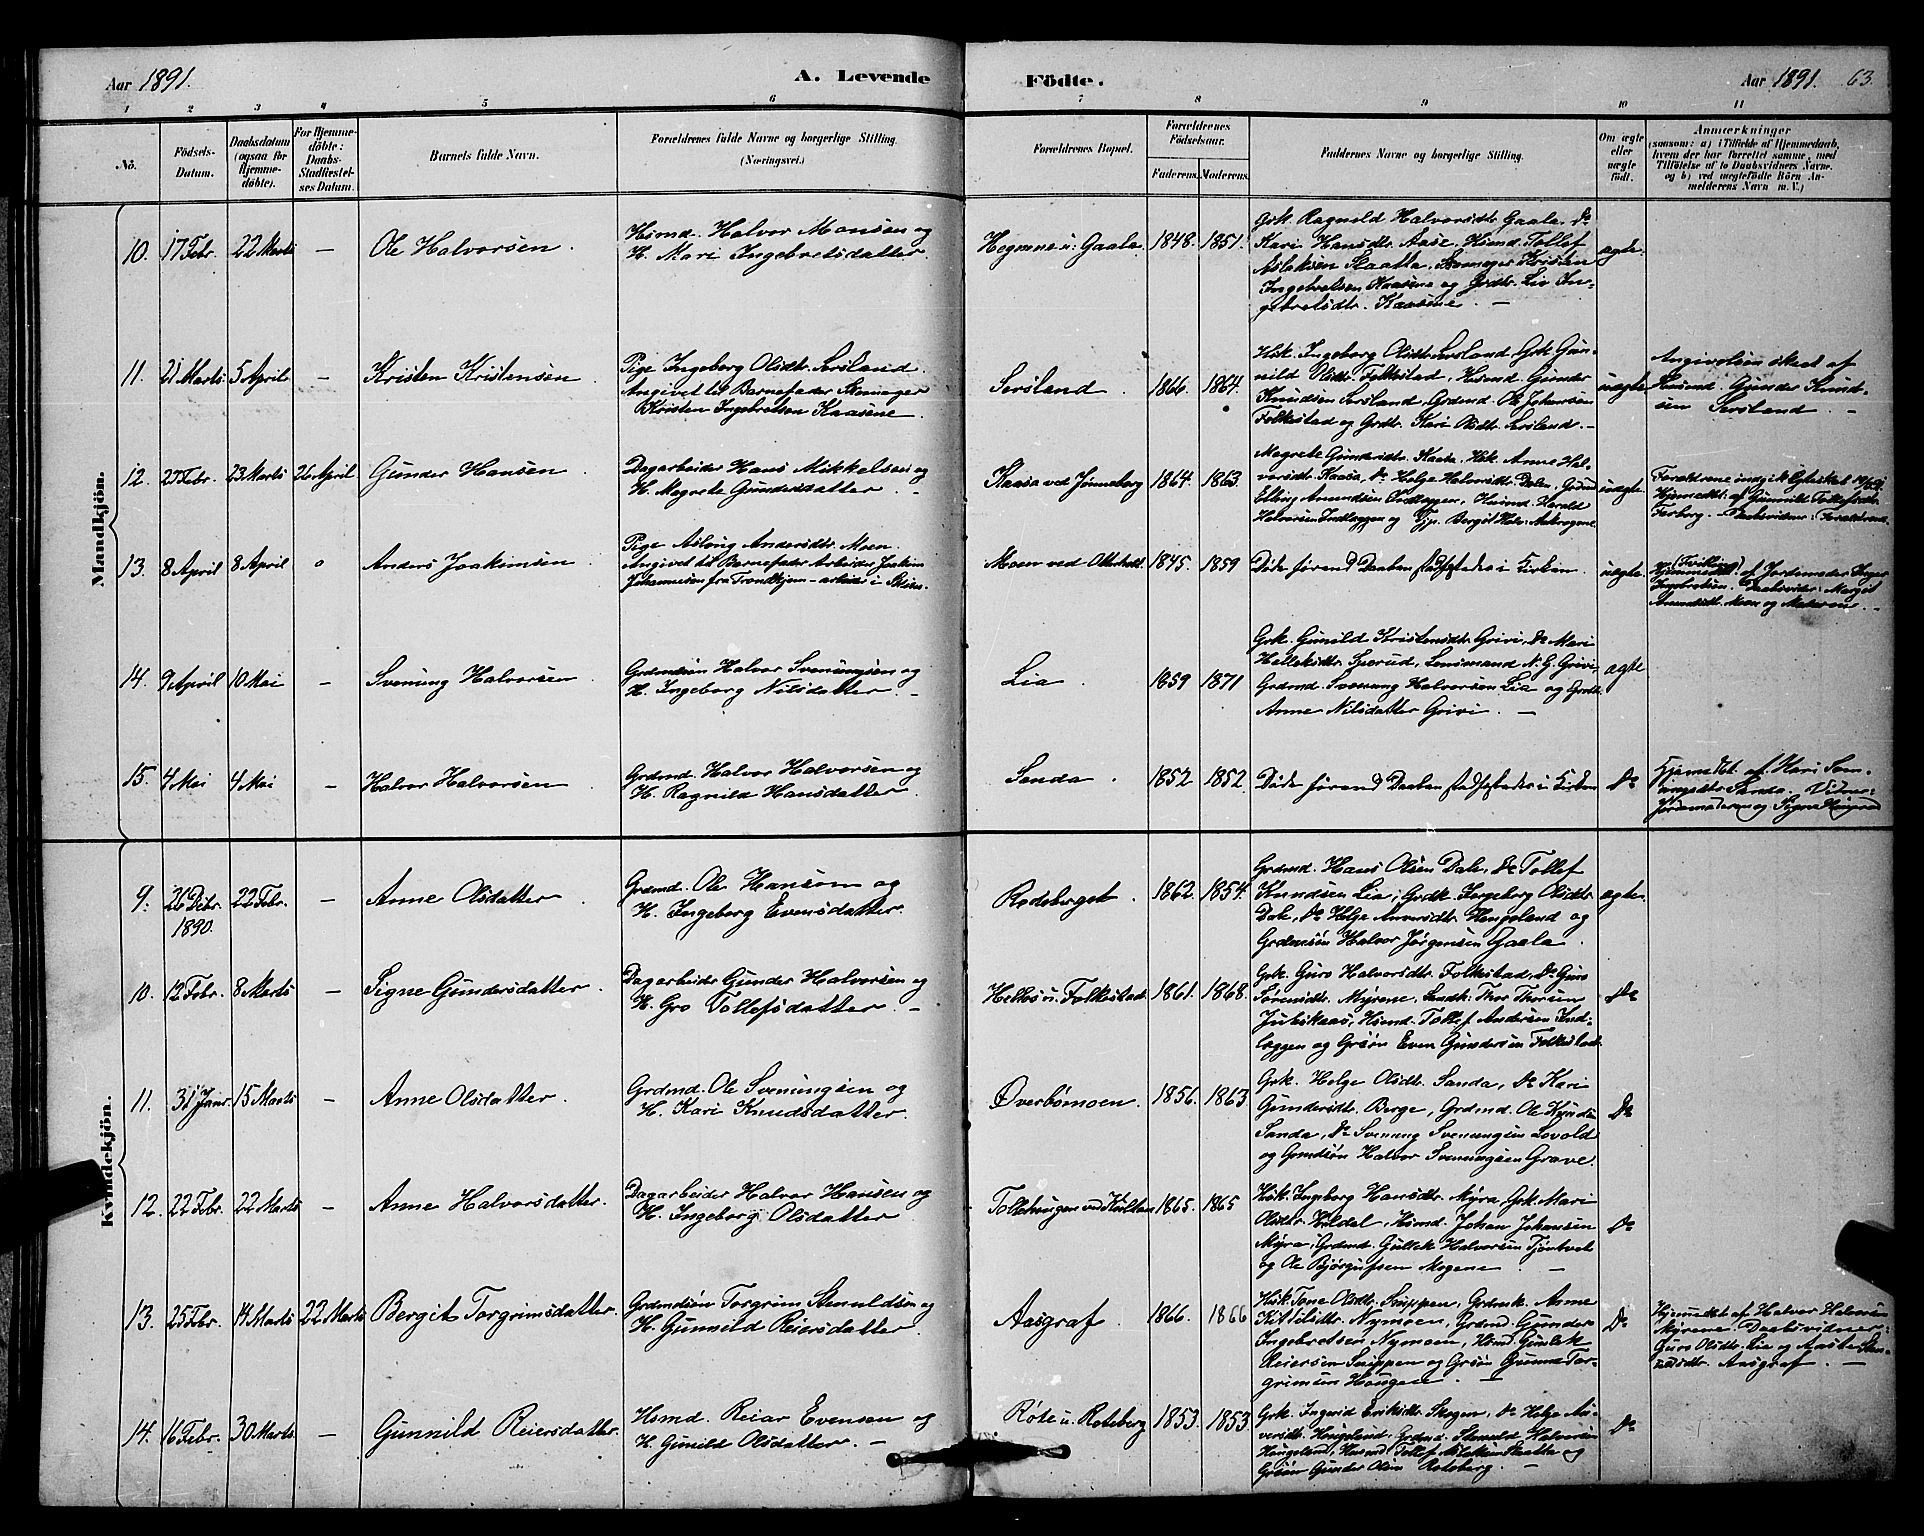 Aar 1891.
A. Levende Födte.
Aar 1891. 63.
1 2 3 4 5 6 7 8 9 10 11
No.
Födsels-Datum.
Daabsdatum (ogsaa for Hjemme-döbte).
For Hjemme-döbte: Daabs-Stadfæstel-ses Datum.
Barnets fulde Navn.
Forældrenes fulde Navne og borgerlige Stilling. (Næringsvei.)
Forældrenes Bopæl.
Forældrenes Födselsaar.
Faderens. Moderens.
Faddernes Navne og borgerlige Stilling.
Om ægte eller uægte födt.
Anmærkninger
(saasom: a) i Tilfælde af Hjemmedaab, hvem der har forrettet samme, med Tilföielse af to Daabsvidners Navne, og b) ved uægtefödte Börn An-melderens Navn m. V.)
Mandkjön.
10. 17 Febr. 22 Marts — Ole Halvorsen.
Husmd. Halvor Monsen og
H. Mari Ingebretsdatter.
Hegrene u: Gaala. 1848. 1851.
Grk. Ragnild Halvorsdtr. Gaala. Do
Kari Hansdtr. Aase, Husmd. Tollef
Aslaksen Slaatta, Stenmager Kristen
Ingebretsen Kaasene og Grdtr. Liv In-
gebretsdtr. Kaasene. —
ægte.
11. 21 Marts 5 April — Kristen Kristensen.
Pige Ingeborg Olsdtr. Sersland.
Angivet til Barnefader Stenmager
Kristen Ingebretsen Kaasene.
Sersland. 1866. 1864.
Hsk. Ingeborg Olsdtr. Sersland, Grk. Gun-
nild Olsdtr. Folkestad, Husmd. Gunder
Knudsen Sersland, Grdmd. Ole Johansen
Folkestad og Grdtr. Kari Olsdtr. Sersland. —
uægte
Angivelsen skeet af
Husmd. Gunder Knud-
sen Sersland. —
12. 27 Febr. 23 Marts 26 April Gunder Hansen.
Dagarbeider Hans Mikkelsen og
H. Megrete Gundersdatter. —
Kaasa ved Jønneberg 1864. 1863.
Megrete Gundersdtr. Kaasa, Hsk. Anne Hal-
vorsdtr. Kaasa, Do Helge Halvorsdtr. Dalen, Grdmd.
Elling Amundsen Indlæggen, Husmd. Harald
Halvorsen Indlæggen og Tjp. Bergit
uægte.
Forældrene indgik Ægteskab
Hjemmedbt. af Gunnild Tollefsdtr.
Daabsvidner: Forældrene
13. 8 April 8 April o Anders Joakimsen
Pige Aslaug Andersdtr. Moen.
Angivet til Barnefader Arbeider Joakim
Johannesen fra Trondhjem – arbeider i Skien.
Moen ved Olterholt. 1845. 1859
Døde førend Daaben stadfæstedes i Kirken.
uægte.
(Tvilling)
Hjemmedbt. af Jordemoder Inger
Ingebretsen. Daabsvidner: Margit
Amundsdtr. Moen og Moderen. —
14. 9 April 10 Mai — Svenung Halvorsen.
Grdmdsøn Halvor Svenungsen og
H. Ingeborg Nilsdatter —
Lia. 1859 1871
Grk. Gunild Kristensdtr. Grivi, Do Mari
Helleksdtr. Sjerud, Lensmand N. G. Grivi,
Grdmd. Svenung Halvorsen Lia og Grdtr.
Anne Nilsdatter Grivi. —
ægte
15. 4 Mai 4 Mai — Halvor Halvorsen
Grdmd. Halvor Halvorsen og
H. Ragnild Hansdatter.
Sanda. 1852 1852.
Døde førend Daaben stadfæstedes i Kirken
Do
Hjemmedbt. af Kari Sven-
ungsdtr. Sanda. Vidner:
Jordemoderen og Signe
Kvindekjön.
9. 26 Dcbr. 1890. 22 Febr. — Anne Olsdatter.
Grdmd. Ole Hansen og
H. Ingeborg Evensdatter.
Rodeberget. 1862. 1854.
Grdmd. Hans Olsen Dale, Do Tollef
Knudsen Lia, Grdk. Ingeborg Olsdtr.
Dale, Do Helge Anversdtr. Høgeland og
Grdmdsøn Halvor Jørgensen Gaala.
ægte.
10. 12 Febr. 8 Marts — Signe Gundersdatter.
Dagarbeider Gunder Halvorsen og
H. Gro Tollefsdatter. —
Hellos u: Folkestad. 1861. 1868.
Grk. Guro Halvorsdtr. Folkestad, Do Guro
Sørensdtr. Myrene, Landh. Thor Thorsen
Juliskaas, Husmd. Tollef Andersen Ind-
læggen og Grsøn Even Gundersen Folkestad.
Do
11. 31 Janr. 15 Marts — Anne Olsdatter.
Grdmd. Ole Svenungsen og
H. Kari Knudsdatter.
Øverbømoen. 1856. 1863.
Grk. Helge Olsdtr. Sanda, Do Kari
Gundersdtr. Berge, Grdmd. Ole Knuds.
Sanda, Do Svenung Svenungsen Lovold
og Grmdsøn Halvor Svenungsen Grave.
Do
12. 22 Febr. 22 Marts — Anne Halvorsdatter.
Dagarbeider Halvor Hansen og
H. Ingeborg Olsdatter
Tollehaugen ved Kviltan 1865. 1865
Hsk. Ingeborg Hansdtr. Myra, Grk. Mari
Olsdtr. Kildal, Husmd. Johan Johansen
Myra, Grdmd. Gullek Halvorsen Tjøntvet
og Ole Bjørgufsen Mogene. —
Do
13. 25 Febr. 14 Marts 22 Marts Bergit Torgrimsdatter.
Grdmdsøn Torgrim Stenuldsen og
H. Gunnild Reiersdatter.
Aasgraf. 1866. 1866
Hsk. Tone Olsdtr. Snippen, Grdmk. Anne
Kittilsdtr. Nymoen, Grdmd. Gunder
Ingebretsen Nymoen, Husmd. Gunlek
Reiersen Snippen og Grsøn Gunnar Tor-
grimsen Haugen. —
Do
Hjemmedbt. af Halvor Halvorsen
Myrene. Daabsvidner:
Guro Olsdtr. Lia og Aaste Sten-
uldsdtr. Aasgraf. —
14. 16 Febr. 30 Marts — Gunnild Reiersdatter.
Husmd. Reiar Evensen og
H. Gunild Olsdatter. —
Røte u. Roteberg 1853. 1853.
Grk. Ingerid Eriksdtr. Skogen, Do Helge An-
versdtr. Høgeland, Grdmd. Stenuld Halvorsen
Høgeland, Husmd. Tollef Aslaksen Slaatta og
Grsøn Gunder Olsen Roteberg. —
Do